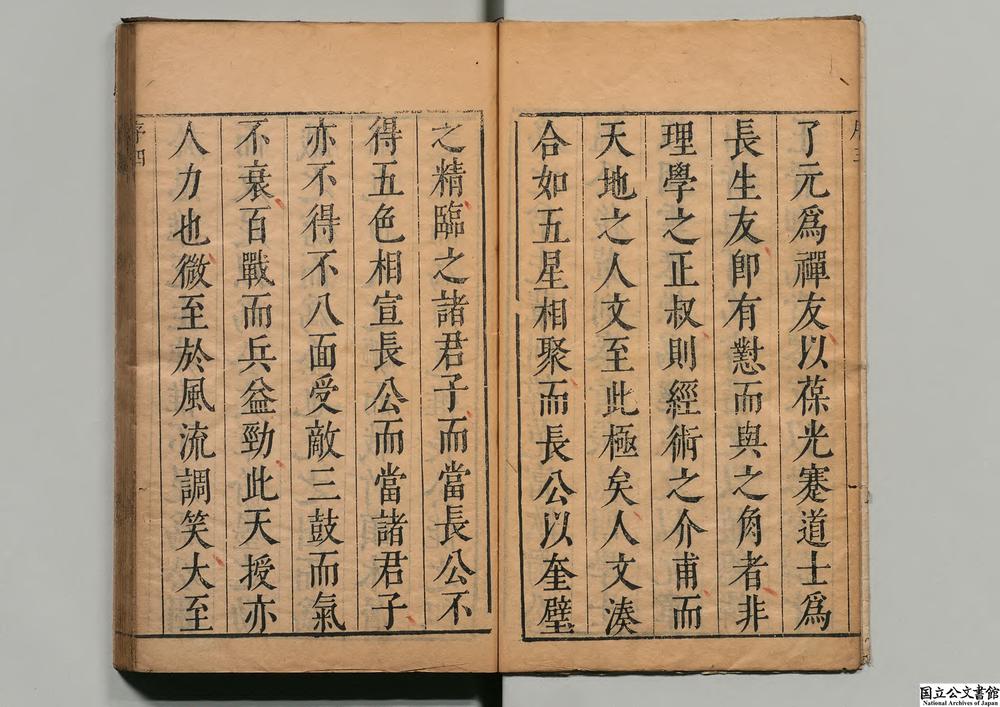 了元爲禪友以葆光蹇道士爲
長生友卽有懟而與之角者非
理學之正叔則經術之介甫而
天地之人文至此極矣人文湊
合如五星相聚而長公以奎璧
之精臨之諸君子而當長公不
得五色相宣長公而當諸君子
亦不得不八面受敵三鼓而氣
不衰百戰而兵益勁此天授亦
人力也微至於風流調笑大至
序四
国立公文書館
National Archives of Japan